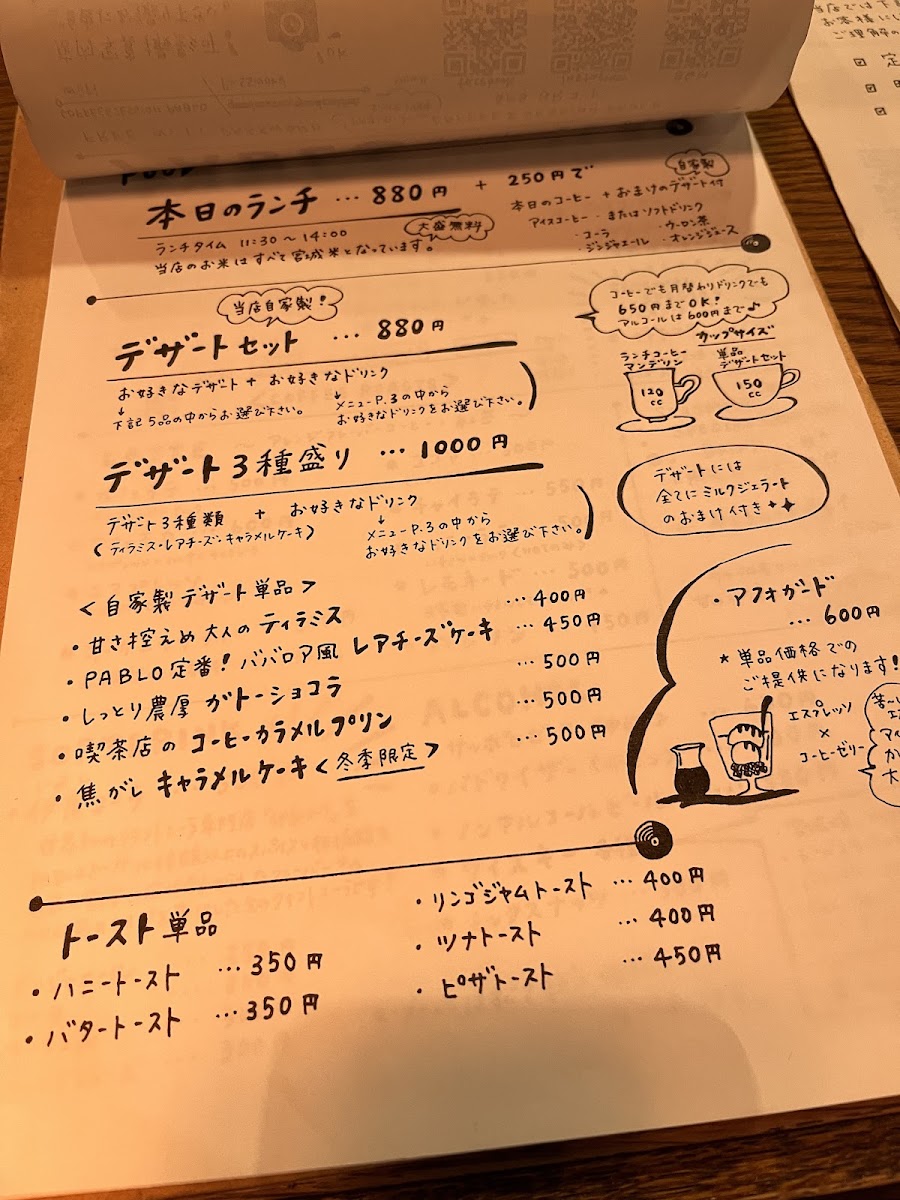 当店では
お客様に
ご理解の
FOOD
本日のランチ … 880円
+ 250円で
自家製
本日のコーヒー + おまけのデザート付
アイスコーヒー・またはソフトドリンク
・コーラ ・ウーロン茶
・ジンジャエール ・オレンジジュース
ランチタイム 11:30〜14:00
大盛無料
当店のお米はすべて宮城米となっています。
当店自家製!
デザートセット … 880円
お好きなデザート + お好きなドリンク
↓ ↓
下記5品の中からお選び下さい。
メニューP.3の中から
お好きなドリンクをお選び下さい。
コーヒーでも月替わりドリンクでも
650円までOK!
アルコールは600円まで♪
カップサイズ
ランチコーヒー
マンデリン
120
cc
単品
デザートセット
150
cc
デザート3種盛り … 1000円
デザート3種類 + お好きなドリンク
(ティラミス・レアチーズ・キャラメルケーキ)
↓
メニューP.3の中から
お好きなドリンクをお選び下さい。
デザートには
全てにミルクジェラート
のおまけ付き
<自家製デザート単品>
・甘さ控えめ大人のティラミス … 400円
・PABLO定番!ババロア風 レアチーズケーキ … 450円
・しっとり濃厚 ガトーショコラ … 500円
・喫茶店の コーヒーカラメルプリン … 500円
・焦がし キャラメルケーキ<冬季限定> … 500円
・アフォガード
… 600円
★単品価格での
ご提供になります!
エスプレッソ
×
コーヒーゼリー
トースト単品
・ハニートースト … 350円
・バタートースト … 350円
・リンゴジャムトースト … 400円
・ツナトースト … 400円
・ピザトースト … 450円